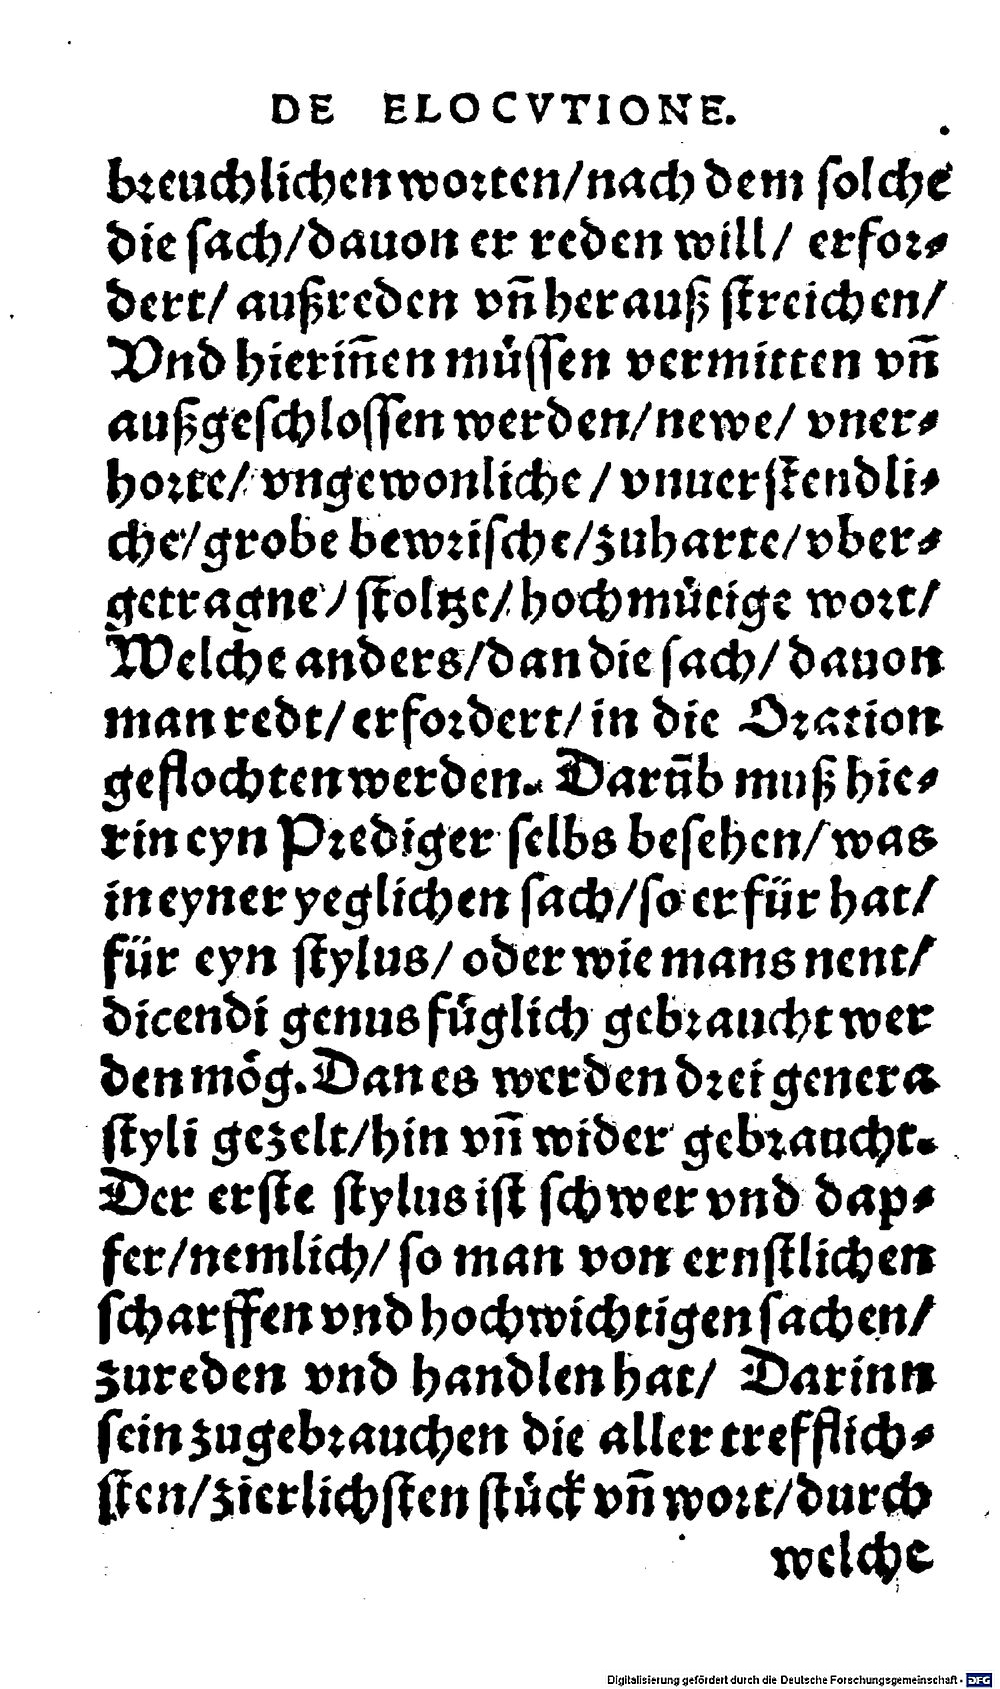 DE ELOCVTIONE.
breuchlichen worten/nach dem solche
die sach/dauon er reden will/ erfor⸗
dert/ außreden vn̄ herauß streichen/
Vnd hierin̄en müssen vermitten vn̄
außgeschlossen werden/newe/ vner⸗
horte/ vngewonliche/ vnuerstendli⸗
che/grobe bewrische/zuharte/vber⸗
getragne/ stoltze/hochmütige wort/
Welche anders/dan die sach/dauon
man redt/erfordert/in die Oration
geflochten werden. Darūb muß hie⸗
rin eyn Prediger selbs besehen/was
in eyner yeglichen sach/so er für hat/
für eyn stylus/ oder wie mans nent/
dicendi genus füglich gebraucht wer
den mög. Dan es werden drei genera
styli gezelt/hin vn̄ wider gebraucht.
Der erste stylus ist schwer vnd dap⸗
fer/nemlich/ so man von ernstlichen
scharffen vnd hochwichtigen sachen/
zureden vnd handlen hat/ Darinn
sein zugebrauchen die aller trefflich⸗
sten/zierlichsten stück vn̄ wort/durch
welche
Digitalisierung gefördert durch die Deutsche Forschungsgemeinschaft - DFG